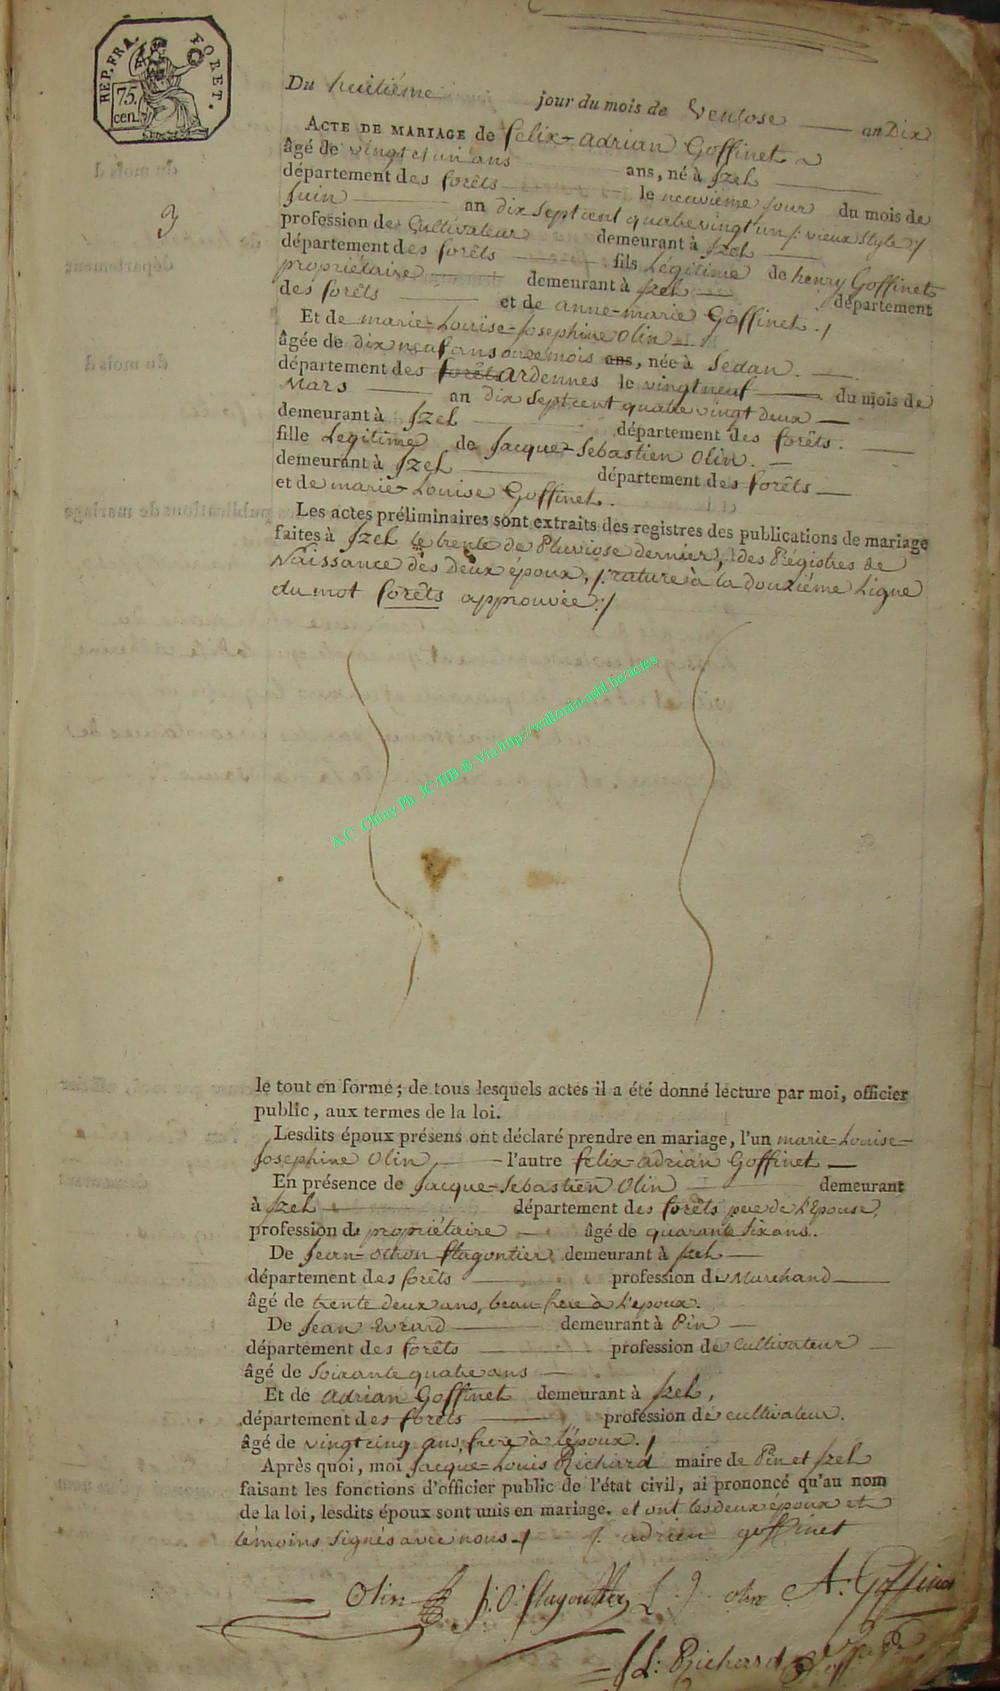 REP. FRA. FORET.
75. cen.
3
Du huitiéme jour du mois de Ventose an Dix
ACTE DE MARIAGE de felix-adrian Goffinet
âgé de vingt et un ans ans, né à Izel
département des forêts le neuvième jour du mois de
Juin an dix Sept cent quatre vingt un /: vieux Style :/
profession de Cultivateur demeurant à Izel
département des forêts fils Légitime de henry Goffinet
propriétaire demeurant à Izel département
des forêts et de anne-marie Goffinet. /
Et de marie-Louise-Josephine Olin
âgée de dix neuf ans onze mois ans, née à Sedan.
département des forêts ardennes le vingt neuf du mois de
Mars an dix Sept cent quatre vingt deux
demeurant à Izel département des forêts.
fille Légitime de Jacque-Sebastien Olin.
demeurant à Izel département des forêts
et de marie-Louise Goffinet.
Les actes préliminaires sont extraits des registres des publications de mariage
faites à Izel le trente de Pluviose dernier, des Régistres de
Naissance des deux époux, /: rature à la douziéme Ligne
du mot forêts approuvée :/
A.C. Chiny Ph. JC-HB © Via http://wallonia-asbl.be/actes
le tout en forme; de tous lesquels actes il a été donné lecture par moi, officier
public, aux termes de la loi.
Lesdits époux présens ont déclaré prendre en mariage, l'un marie-Louise-
Josephine Olin l'autre felix-adrian Goffinet
En présence de Jacque-Sebastien Olin demeurant
à Izel département des forêts pere de l'Epouse,
profession de propriétaire âgé de quarante Six ans.
De Jean- Flagontier demeurant à Izel
département des forêts profession de Marchand
âgé de trente deux ans, beau-frere à l'epoux.
De Jean Evrard demeurant à Pin
département des forêts profession de Cultivateur
âgé de Soixante quatre ans
Et de adrian Goffinet demeurant à Izel,
département des forêts profession de cultivateur.
âgé de vingt cinq ans, frere à l'époux. /
Après quoi, moi Jacque-Louis Richard maire de Pin et Izel
faisant les fonctions d'officier public de l'état civil, ai prononcé qu'au nom
de la loi, lesdits époux sont unis en mariage. et ont les deux époux et
témoins Signés avec nous. / f. adrien goffinet
Olin olin A: Goffinet
J L: Richard